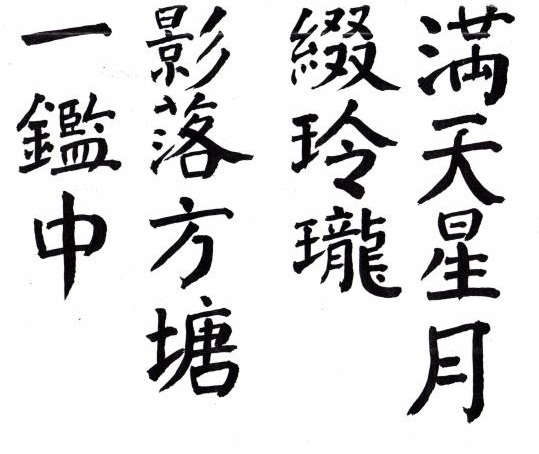 満天星月
綴玲瓏
影落方塘
一鑑中